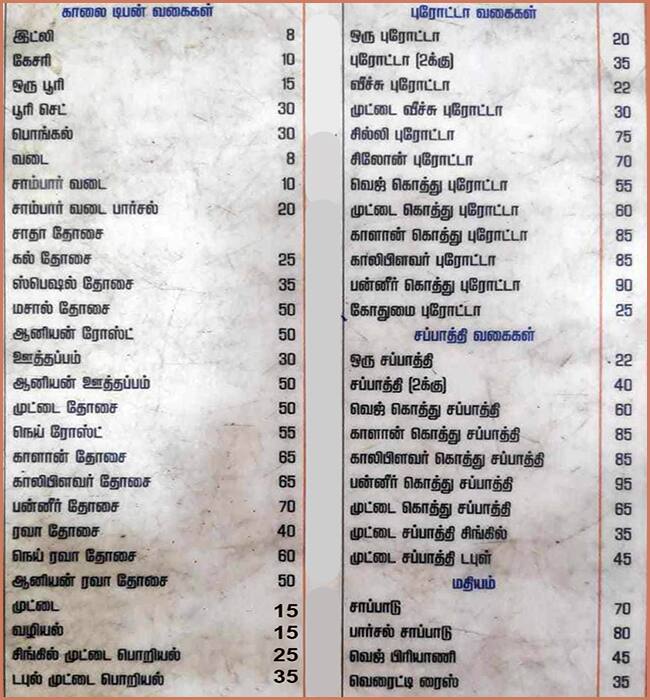 காலை டிபன் வகைகள்
இட்லி 8
கேசரி 10
ஒரு பூரி 15
பூரி செட் 30
பொங்கல் 30
வடை 8
சாம்பார் வடை 10
சாம்பார் வடை பார்சல் 20
சாதா தோசை
கல் தோசை 25
ஸ்பெஷல் தோசை 35
மசால் தோசை 50
ஆனியன் ரோஸ்ட் 50
ஊத்தப்பம் 30
ஆனியன் ஊத்தப்பம் 50
முட்டை தோசை 50
நெய் ரோஸ்ட் 55
காளான் தோசை 65
காலிபிளவர் தோசை 65
பன்னீர் தோசை 70
ரவா தோசை 40
நெய் ரவா தோசை 60
ஆனியன் ரவா தோசை 50
முட்டை 15
வழியல் 15
சிங்கில் முட்டை பொறியல் 25
டபுல் முட்டை பொறியல் 35
புரோட்டா வகைகள்
ஒரு புரோட்டா 20
புரோட்டா (2க்கு) 35
வீச்சு புரோட்டா 22
முட்டை வீச்சு புரோட்டா 30
சில்லி புரோட்டா 75
சிலோன் புரோட்டா 70
வெஜ் கொத்து புரோட்டா 55
முட்டை கொத்து புரோட்டா 60
காளான் கொத்து புரோட்டா 85
காலிபிளவர் புரோட்டா 85
பன்னீர் கொத்து புரோட்டா 90
கோதுமை புரோட்டா 25
சப்பாத்தி வகைகள்
ஒரு சப்பாத்தி 22
சப்பாத்தி (2க்கு) 40
வெஜ் கொத்து சப்பாத்தி 60
காளான் கொத்து சப்பாத்தி 85
காலிபிளவர் கொத்து சப்பாத்தி 85
பன்னீர் கொத்து சப்பாத்தி 95
முட்டை கொத்து சப்பாத்தி 65
முட்டை சப்பாத்தி சிங்கில் 35
முட்டை சப்பாத்தி டபுள் 45
மதியம்
சாப்பாடு 70
பார்சல் சாப்பாடு 80
வெஜ் பிரியாணி 45
வெரைட்டி ரைஸ் 35